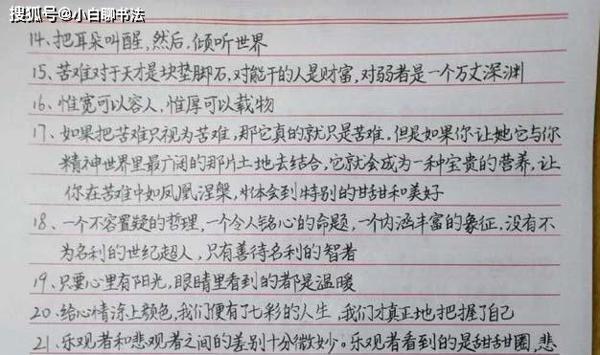 搜狐号@小白聊书法
14、把耳朵叫醒，然后，倾听世界
15、苦难对于天才是块垫脚石，对能干的人是财富，对弱者是一个万丈深渊
16、惟宽可以容人，惟厚可以载物
17、如果把苦难只视为苦难，那它真的就只是苦难。但是如果你让她它与你
精神世界里最广阔的那片土地去结合，它就会成为一种宝贵的营养，让
你在苦难中如凤凰涅槃，体会到特别的甘甜和美好
18、一个不容置疑的哲理，一个令人铭心的命题，一个内涵丰富的象征，没有不
为名利的世纪超人，只有善待名利的智者
19、只要心里有阳光，眼睛里看到的都是温暖
20、给心情涂上颜色，我们便有了七彩的人生，我们才真正地把握了自己
21、乐观者和悲观者之间的差别十分微妙。乐观者看到的是甜甜圈，悲